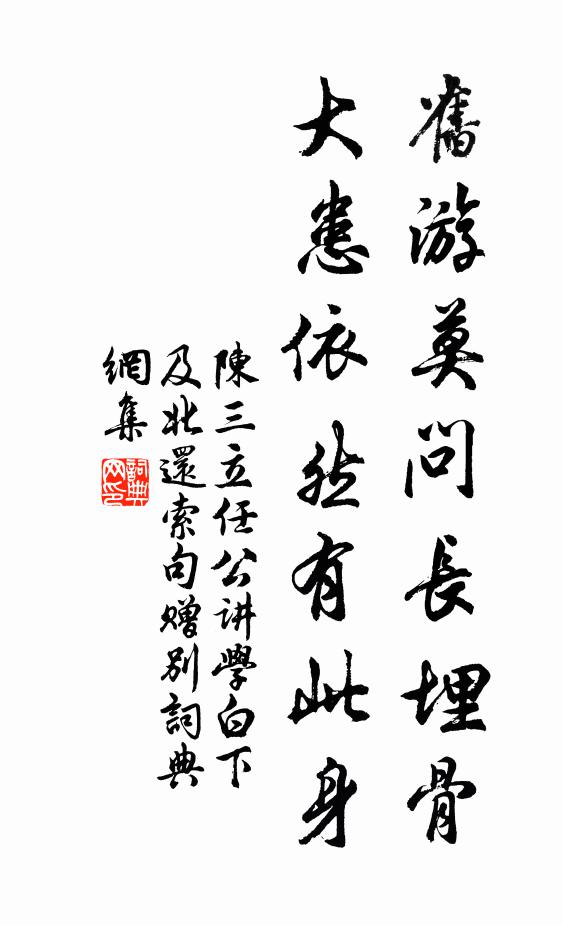 舊游莫問長埋骨
大患依然有此身
陳三立任公讲學白下
及北還索句贈别詞典
網集
詞典網印